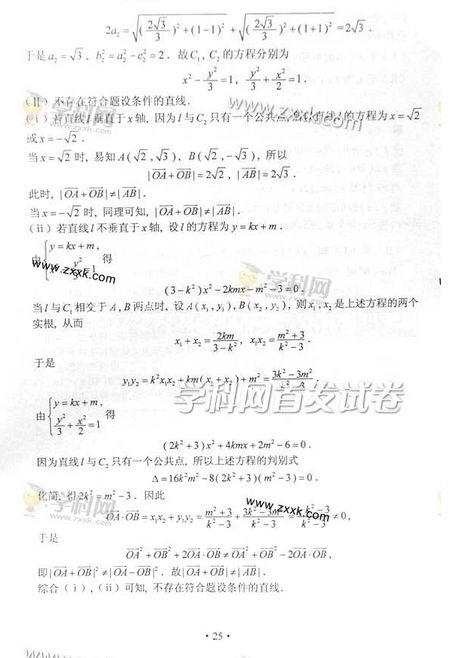 2a₂ = √((2√3/3)² + (1-1)²) + √((2√3/3)² + (1+1)²) = 2√3.
于是 a₂ = √3, b₂² = a₂² - c₂² = 2. 故 C₁, C₂ 的方程分别为
x² - y²/3 = 1, y²/3 + x²/2 = 1.
(Ⅱ) 不存在符合题设条件的直线.
(ⅰ) 若直线 l 垂直于 x 轴, 因为 l 与 C₂ 只有一个公共点, 直线 l 的方程为 x = √2
www.zxxk.com
或 x = -√2.
当 x = √2 时, 易知 A(√2, √3), B(√2, -√3), 所以
|OA + OB| = 2√2, |AB| = 2√3.
此时, |OA + OB| ≠ |AB|.
当 x = -√2 时, 同理可知, |OA + OB| ≠ |AB|.
(ii) 若直线 l 不垂直于 x 轴, 设 l 的方程为 y = kx + m,
由 { y = kx + m, 得
www.zxxk.com
学科网
(3 - k²)x² - 2kmx - m² - 3 = 0.
当 l 与 C₁ 相交于 A, B 两点时, 设 A(x₁, y₁), B(x₂, y₂), 则 x₁, x₂ 是上述方程的两个
实根, 从而
x₁ + x₂ = 2km/(3 - k²), x₁x₂ = (m² + 3)/(k² - 3).
于是
y₁y₂ = k²x₁x₂ + km(x₁ + x₂) + m² = (3k² - 3m²)/(k² - 3).
学科网首发试卷
由 { y = kx + m, y²/3 + x²/2 = 1 得
(2k² + 3)x² + 4kmx + 2m² - 6 = 0.
因为直线 l 与 C₂ 只有一个公共点, 所以上述方程的判别式
Δ = 16k²m² - 8(2k² + 3)(m² - 3) = 0.
学科网
zxxk.com
www.zxxk.com
化简, 得 2k² = m² - 3. 因此
OA · OB = x₁x₂ + y₁y₂ = (m² + 3)/(k² - 3) + (3k² - 3m²)/(k² - 3) = (-k² - 3)/(k² - 3) ≠ 0,
于是
OA² + OB² + 2OA · OB ≠ OA² + OB² - 2OA · OB,
即 |OA + OB|² ≠ |OA - OB|². 故 |OA + OB| ≠ |AB|.
综合 (ⅰ), (ii) 可知, 不存在符合题设条件的直线.
· 25 ·